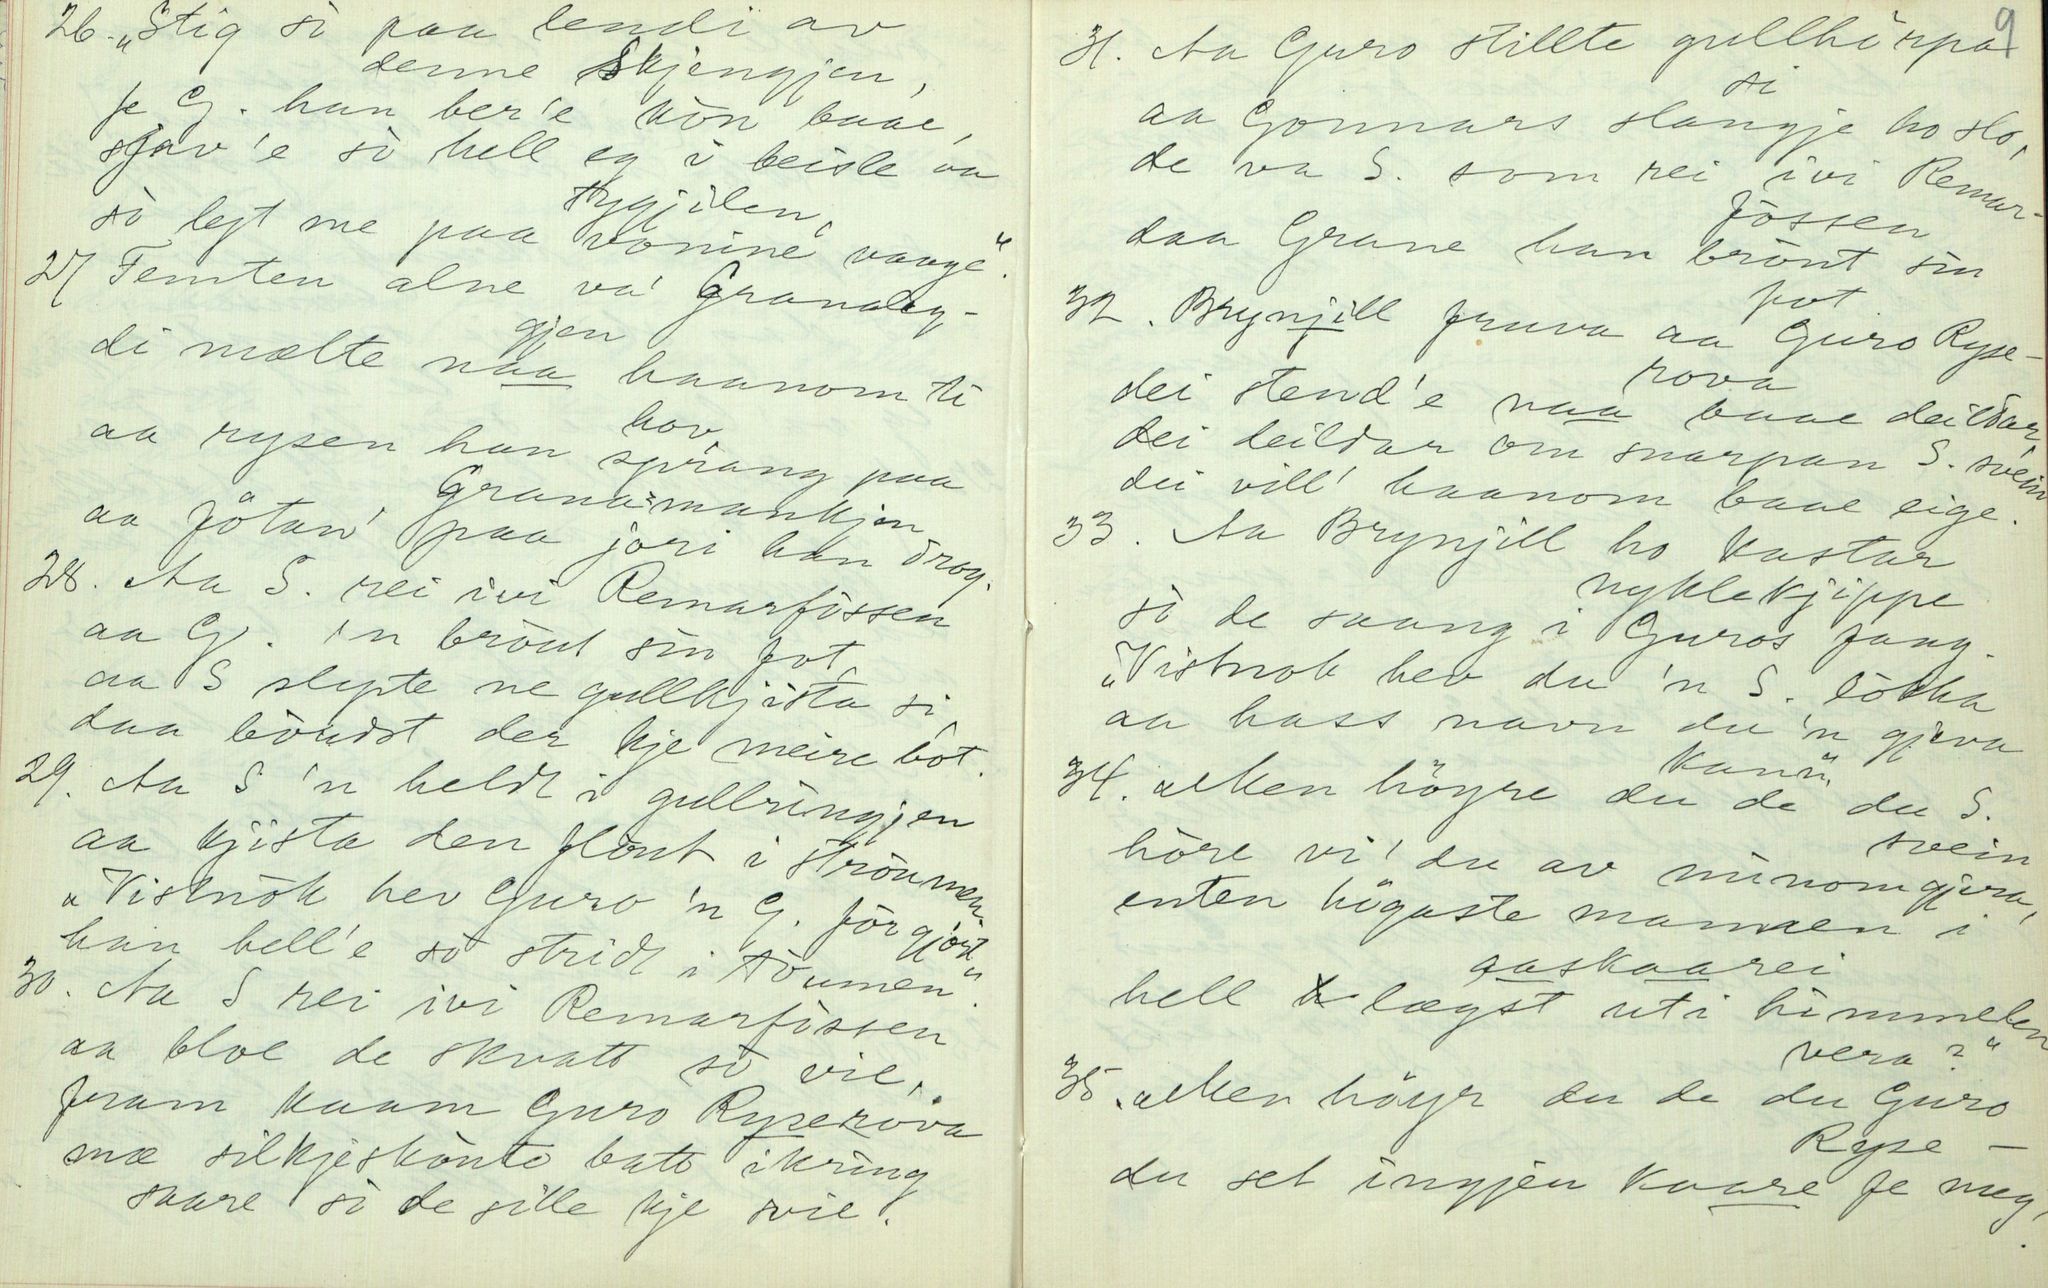 26. „Stig so paa lendi av
denne Skjengjen,
fe G. han ber'e kòn baae,
sjav'e so hell eg i beisle aa
stygjilen,
so lejt me paa vònine vaage".
27 Femten alne va' Granaleg-
gjen
di mælte naa haanom ti
hov,
aa rysen han sprang paa
Grana-mankjen
aa jötan' paa jori han drog.
28. Aa S. rei ivi Remarfòssen
aa G. 'n brònt sin fot,
aa S slepte ne gullkjista si,
daa bòudst der kje meire bot.
29. Aa S 'n heldt i gullringjen
aa kjista den flòut i stròumen.
„Vistnòk hev Guro 'n G. fòrgjort
han hell'e so stridt i tòumen".
30. Aa S rei ivi Remarfòssen
aa bloe de skvatt so vie,
fram kaam Guro Ryserova
mæ silkjeskònto batt ikring
saare so de sille kje svie.
9
31. Aa Guro stillte gullhörpa
si
aa Gonnars slaugje ho slo,
de va S. som rei ivi Remar-
fòssen
daa Grane han brònt sin
fot
32. Brynjill fruva aa Guro Ryse-
rova
dei stend'e naa baae deildar,
dei deildar om snarpan S. svein
dei vill' haanom baae eige.
33. Aa Brynjill ho kastar
nyklekjippe
so de saang i Guros fang.
„Vistnok hev du 'n S. lòkka
aa hass navn du 'n gjeva
kann".
34. „Men höyre du de du S.
svein
höre vi' du av minom gjera,
enten högaste mannen i
aaskaarei
hell lægst uti himmelen
vera?"
35. „Men höyr du de du Guro
Ryse-
du set ingjen kaare fe meg,